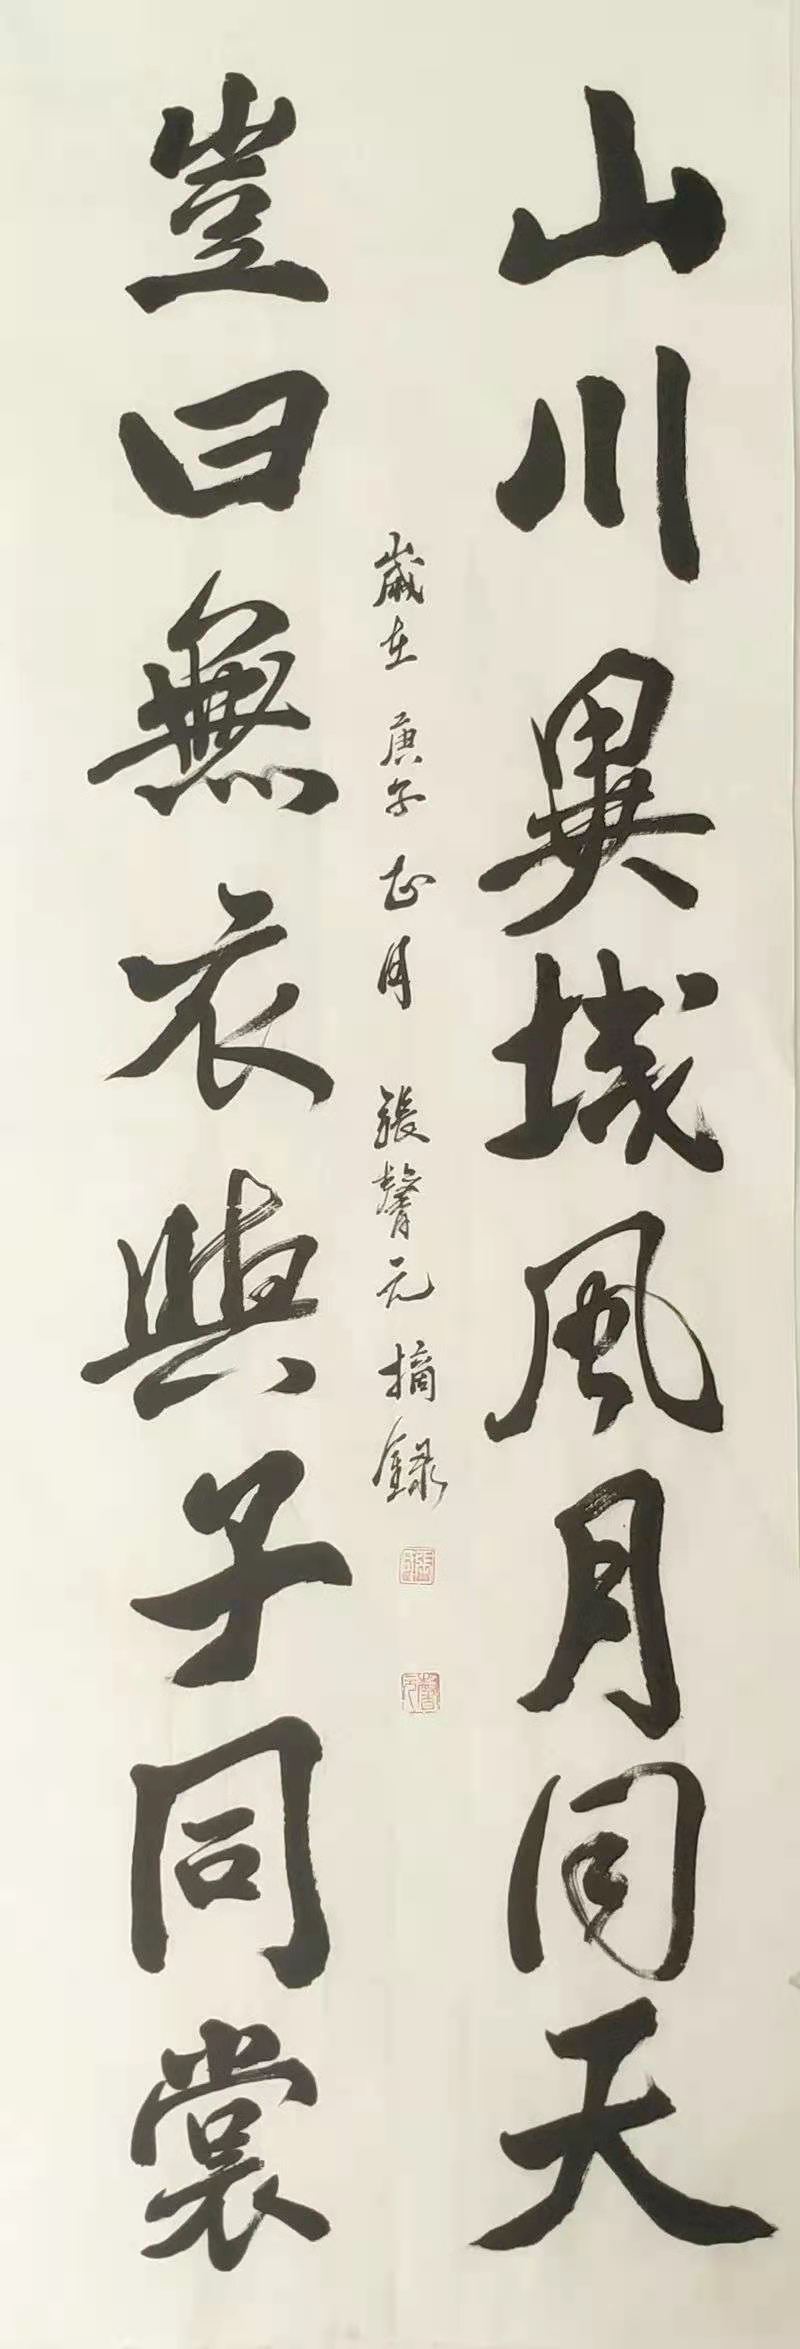 山川異域風月同天
歲在庚子正月張馨元摘錄
豈曰無衣與子同裳